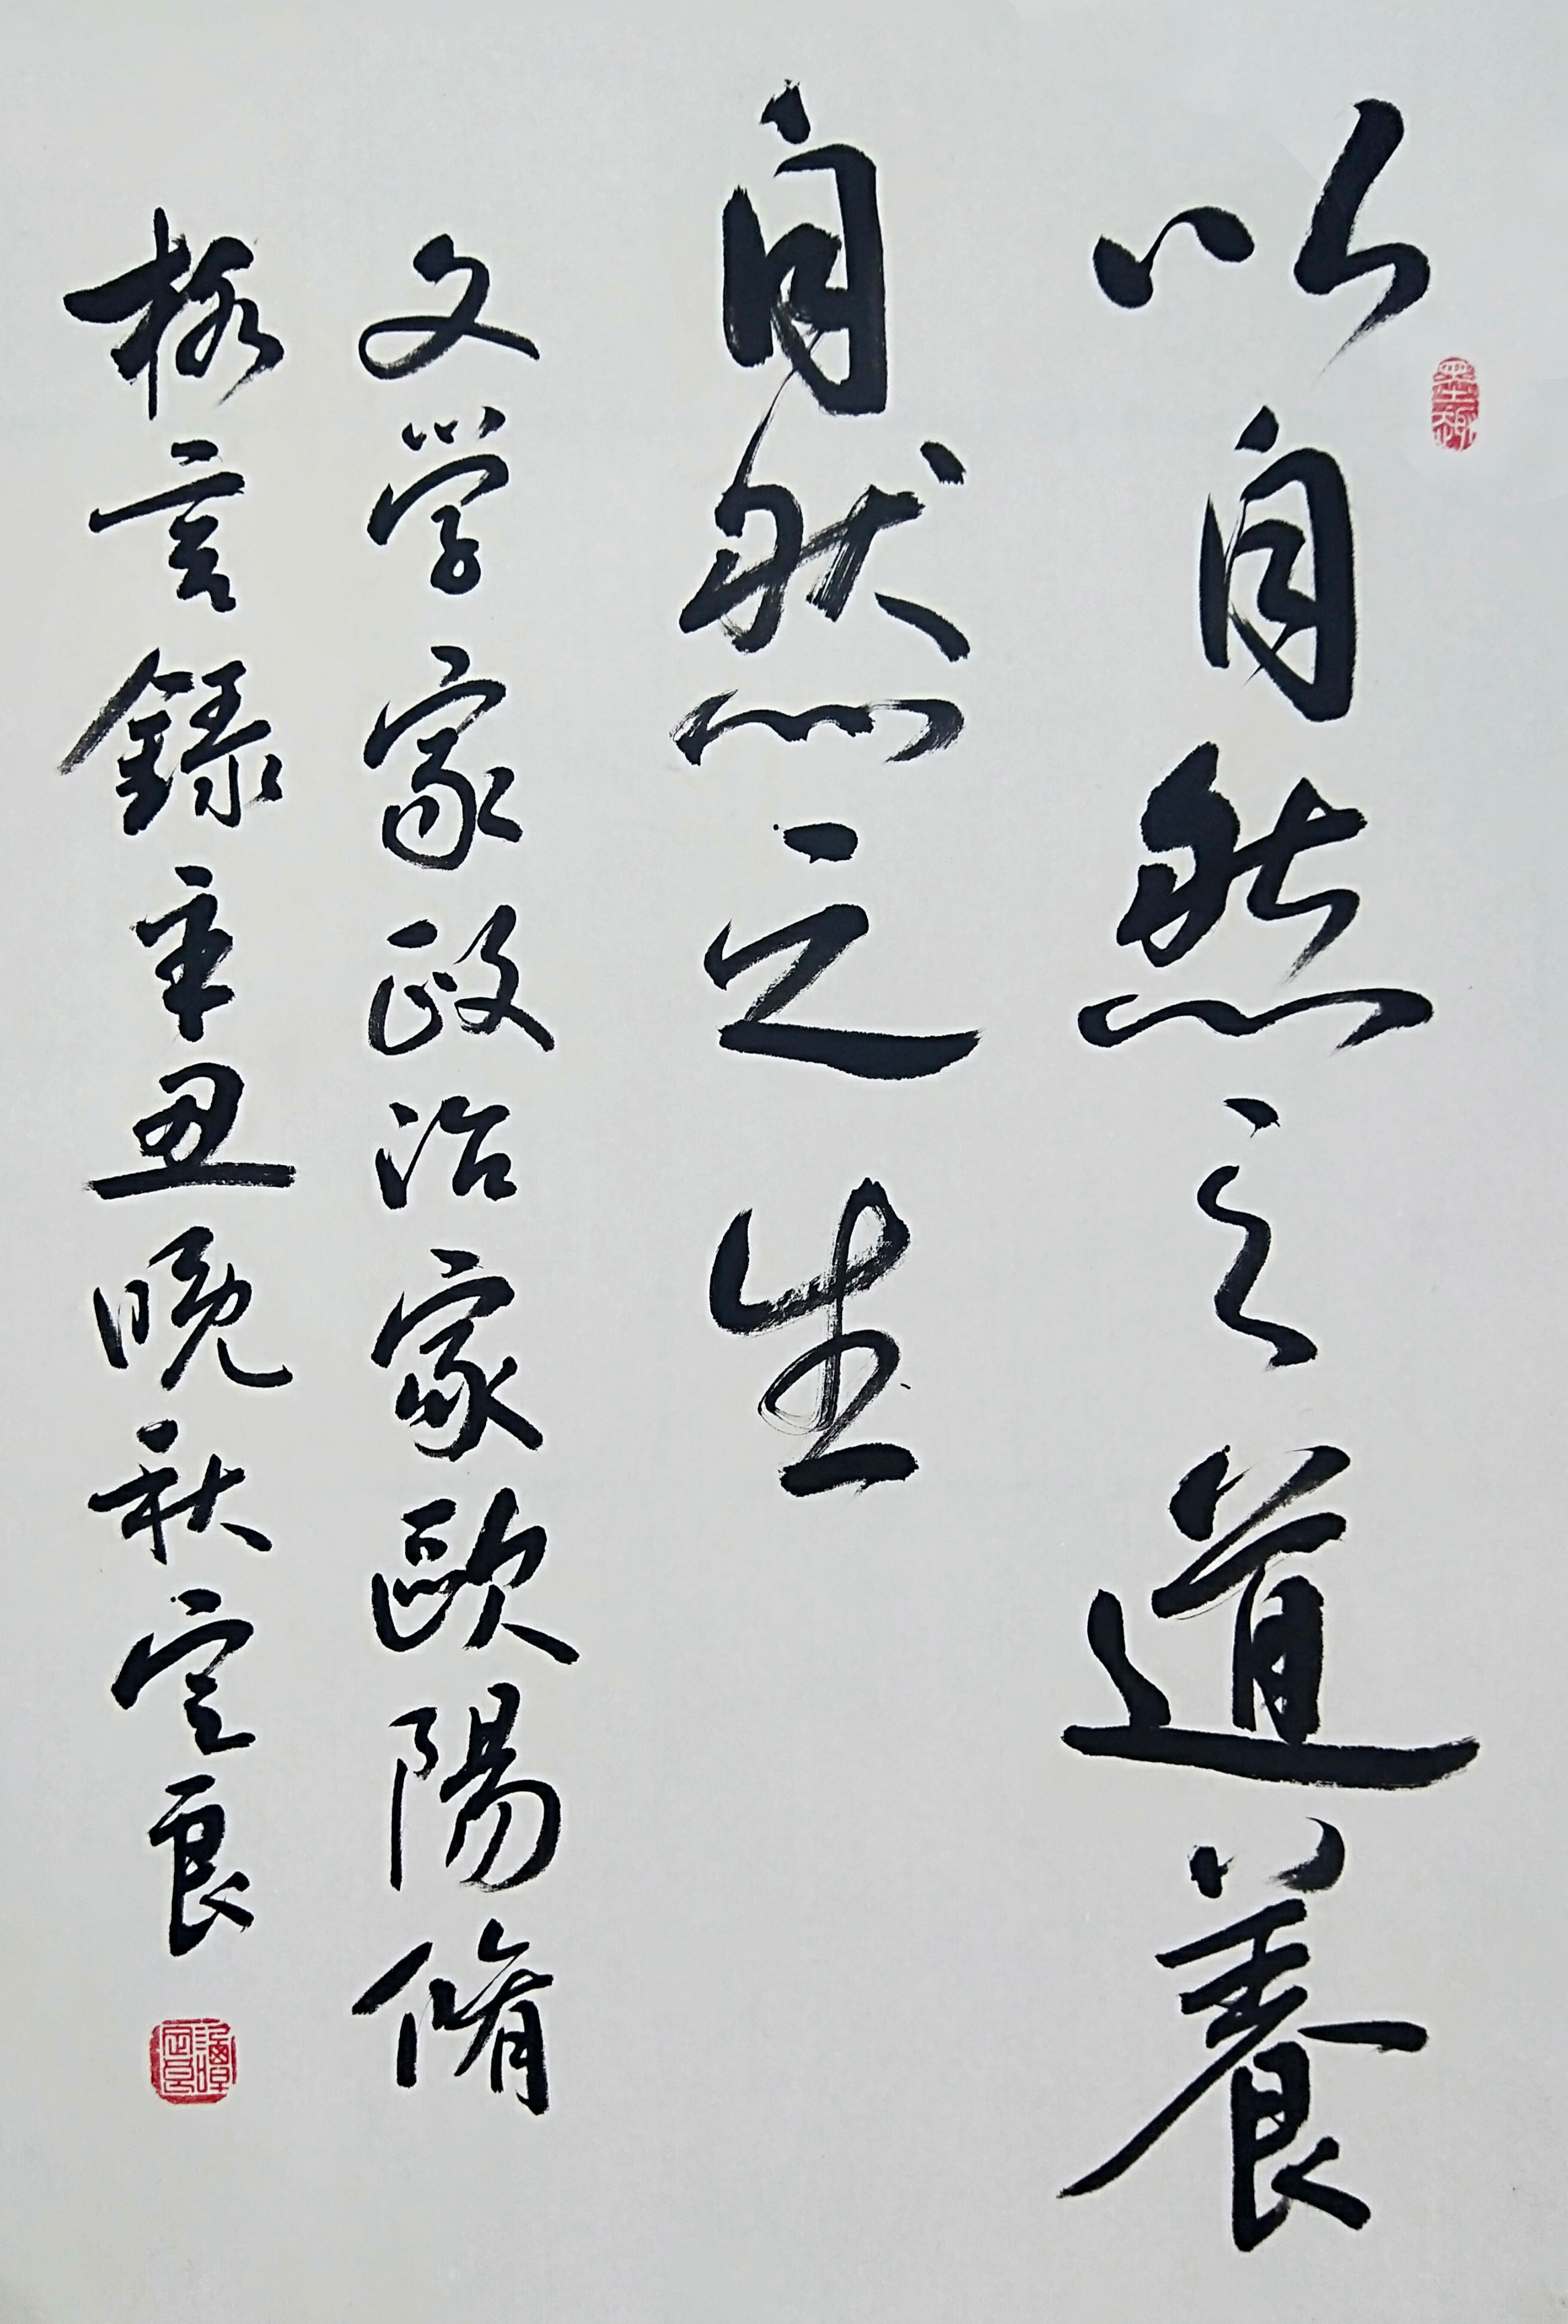 以自然之道養
自然之生
文学家政治家歐陽脩
格言録辛丑晚秋定良
墨趣